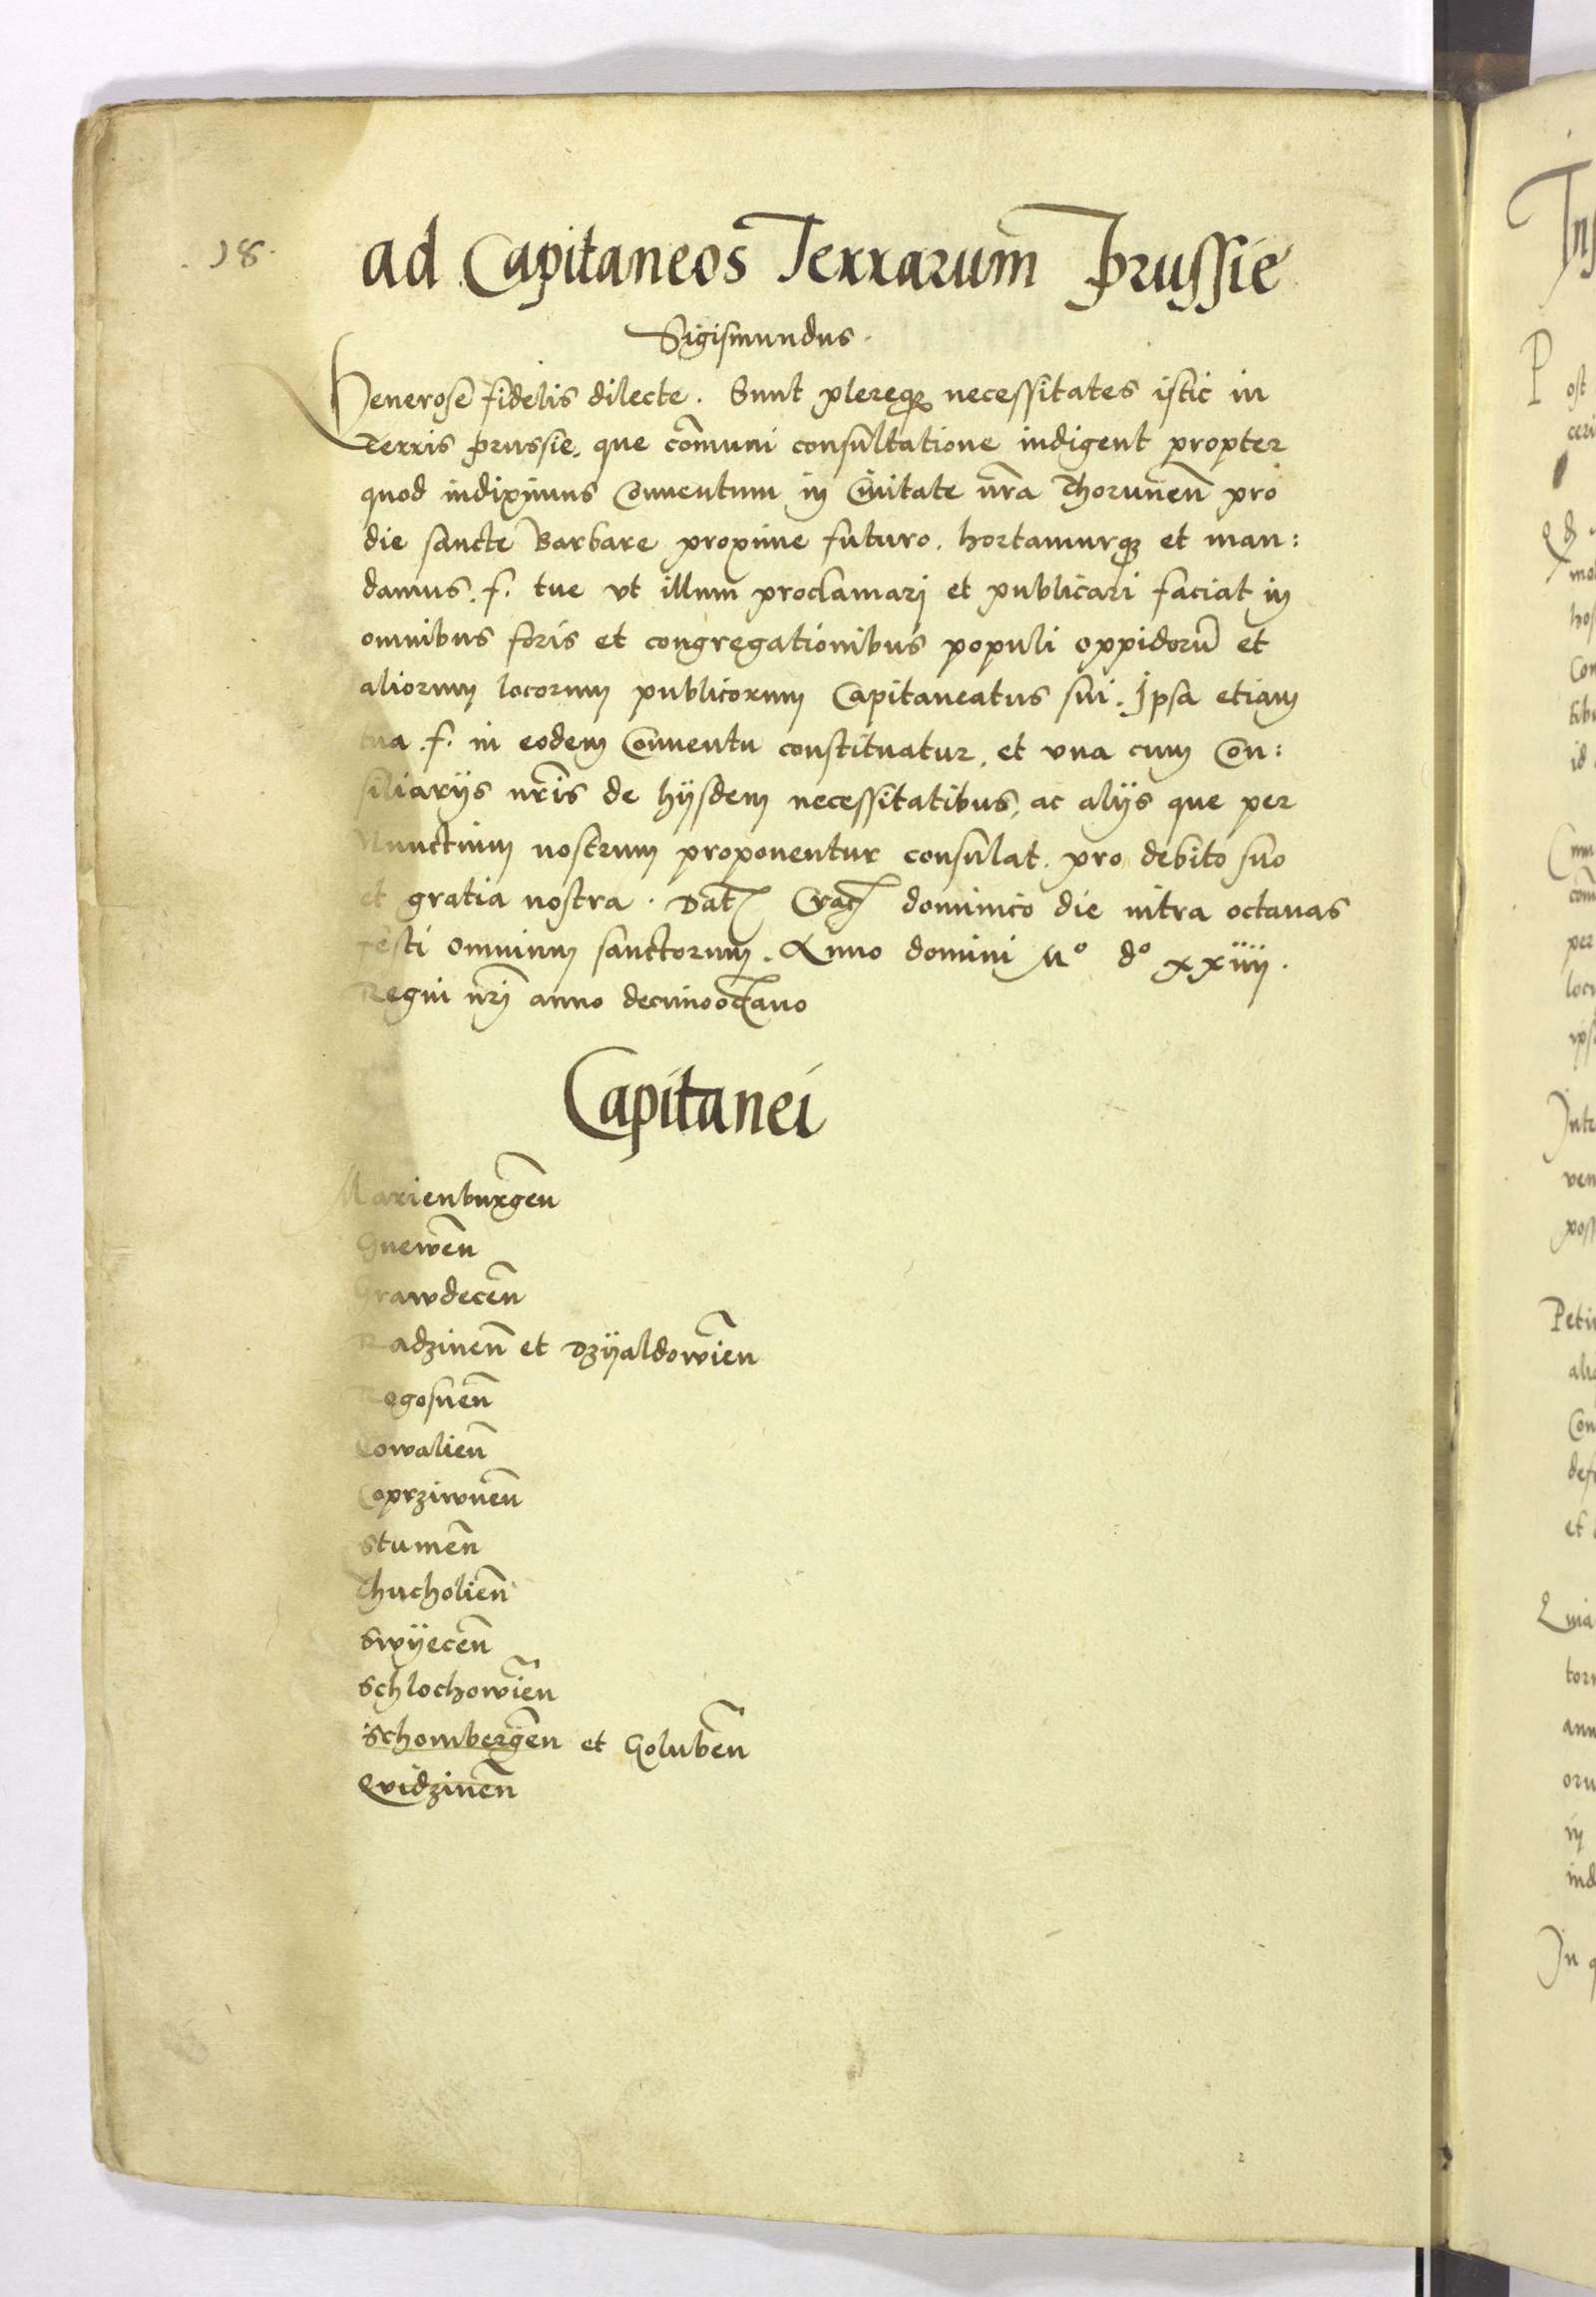 .18.
ad Capitaneos Terrarum Prussie
Sigismundus.
Generose fidelis dilecte. Sunt plereque necessitates istic in
Terris prussie, que cōmuni consultatione indigent propter
quod indiximus Conuentum in Ciuitate nr̄a Thorunen̄ pro
die sancte Barbare proxime futuro. hortamurque et man:
damus .f. tue vt illum proclamari et publicari faciat in
omnibus foris et congregationibus populi oppidorū et
aliorum locorum publicorum Capitaneatus sui. Ipsa etiam
tua .f. in eodem Conuentu constituatur, et vna cum Con:
siliarijs nr̄is de hijsdem necessitatibus, ac alijs que per
Nunctium nostrum proponentur consulat. pro debito suo
et gratia nostra. Dat Crac dominico die intra octauas
festi omnium sanctorum. Anno domini Mº dº xxiiij.
Regni nr̄i anno decimooctauo
Capitanei
Marienburgen̄
Gnewen̄
Grawdecen̄
Radzinen̄ et Dzyaldowien̄
Rogosnen̄
Cowalien̄
Coprziwnen̄
Stumen̄
Thucholien̄
Swÿecen̄
Schlochowien̄
Schombergen̄ et Goluben̄
Qvidzinen̄